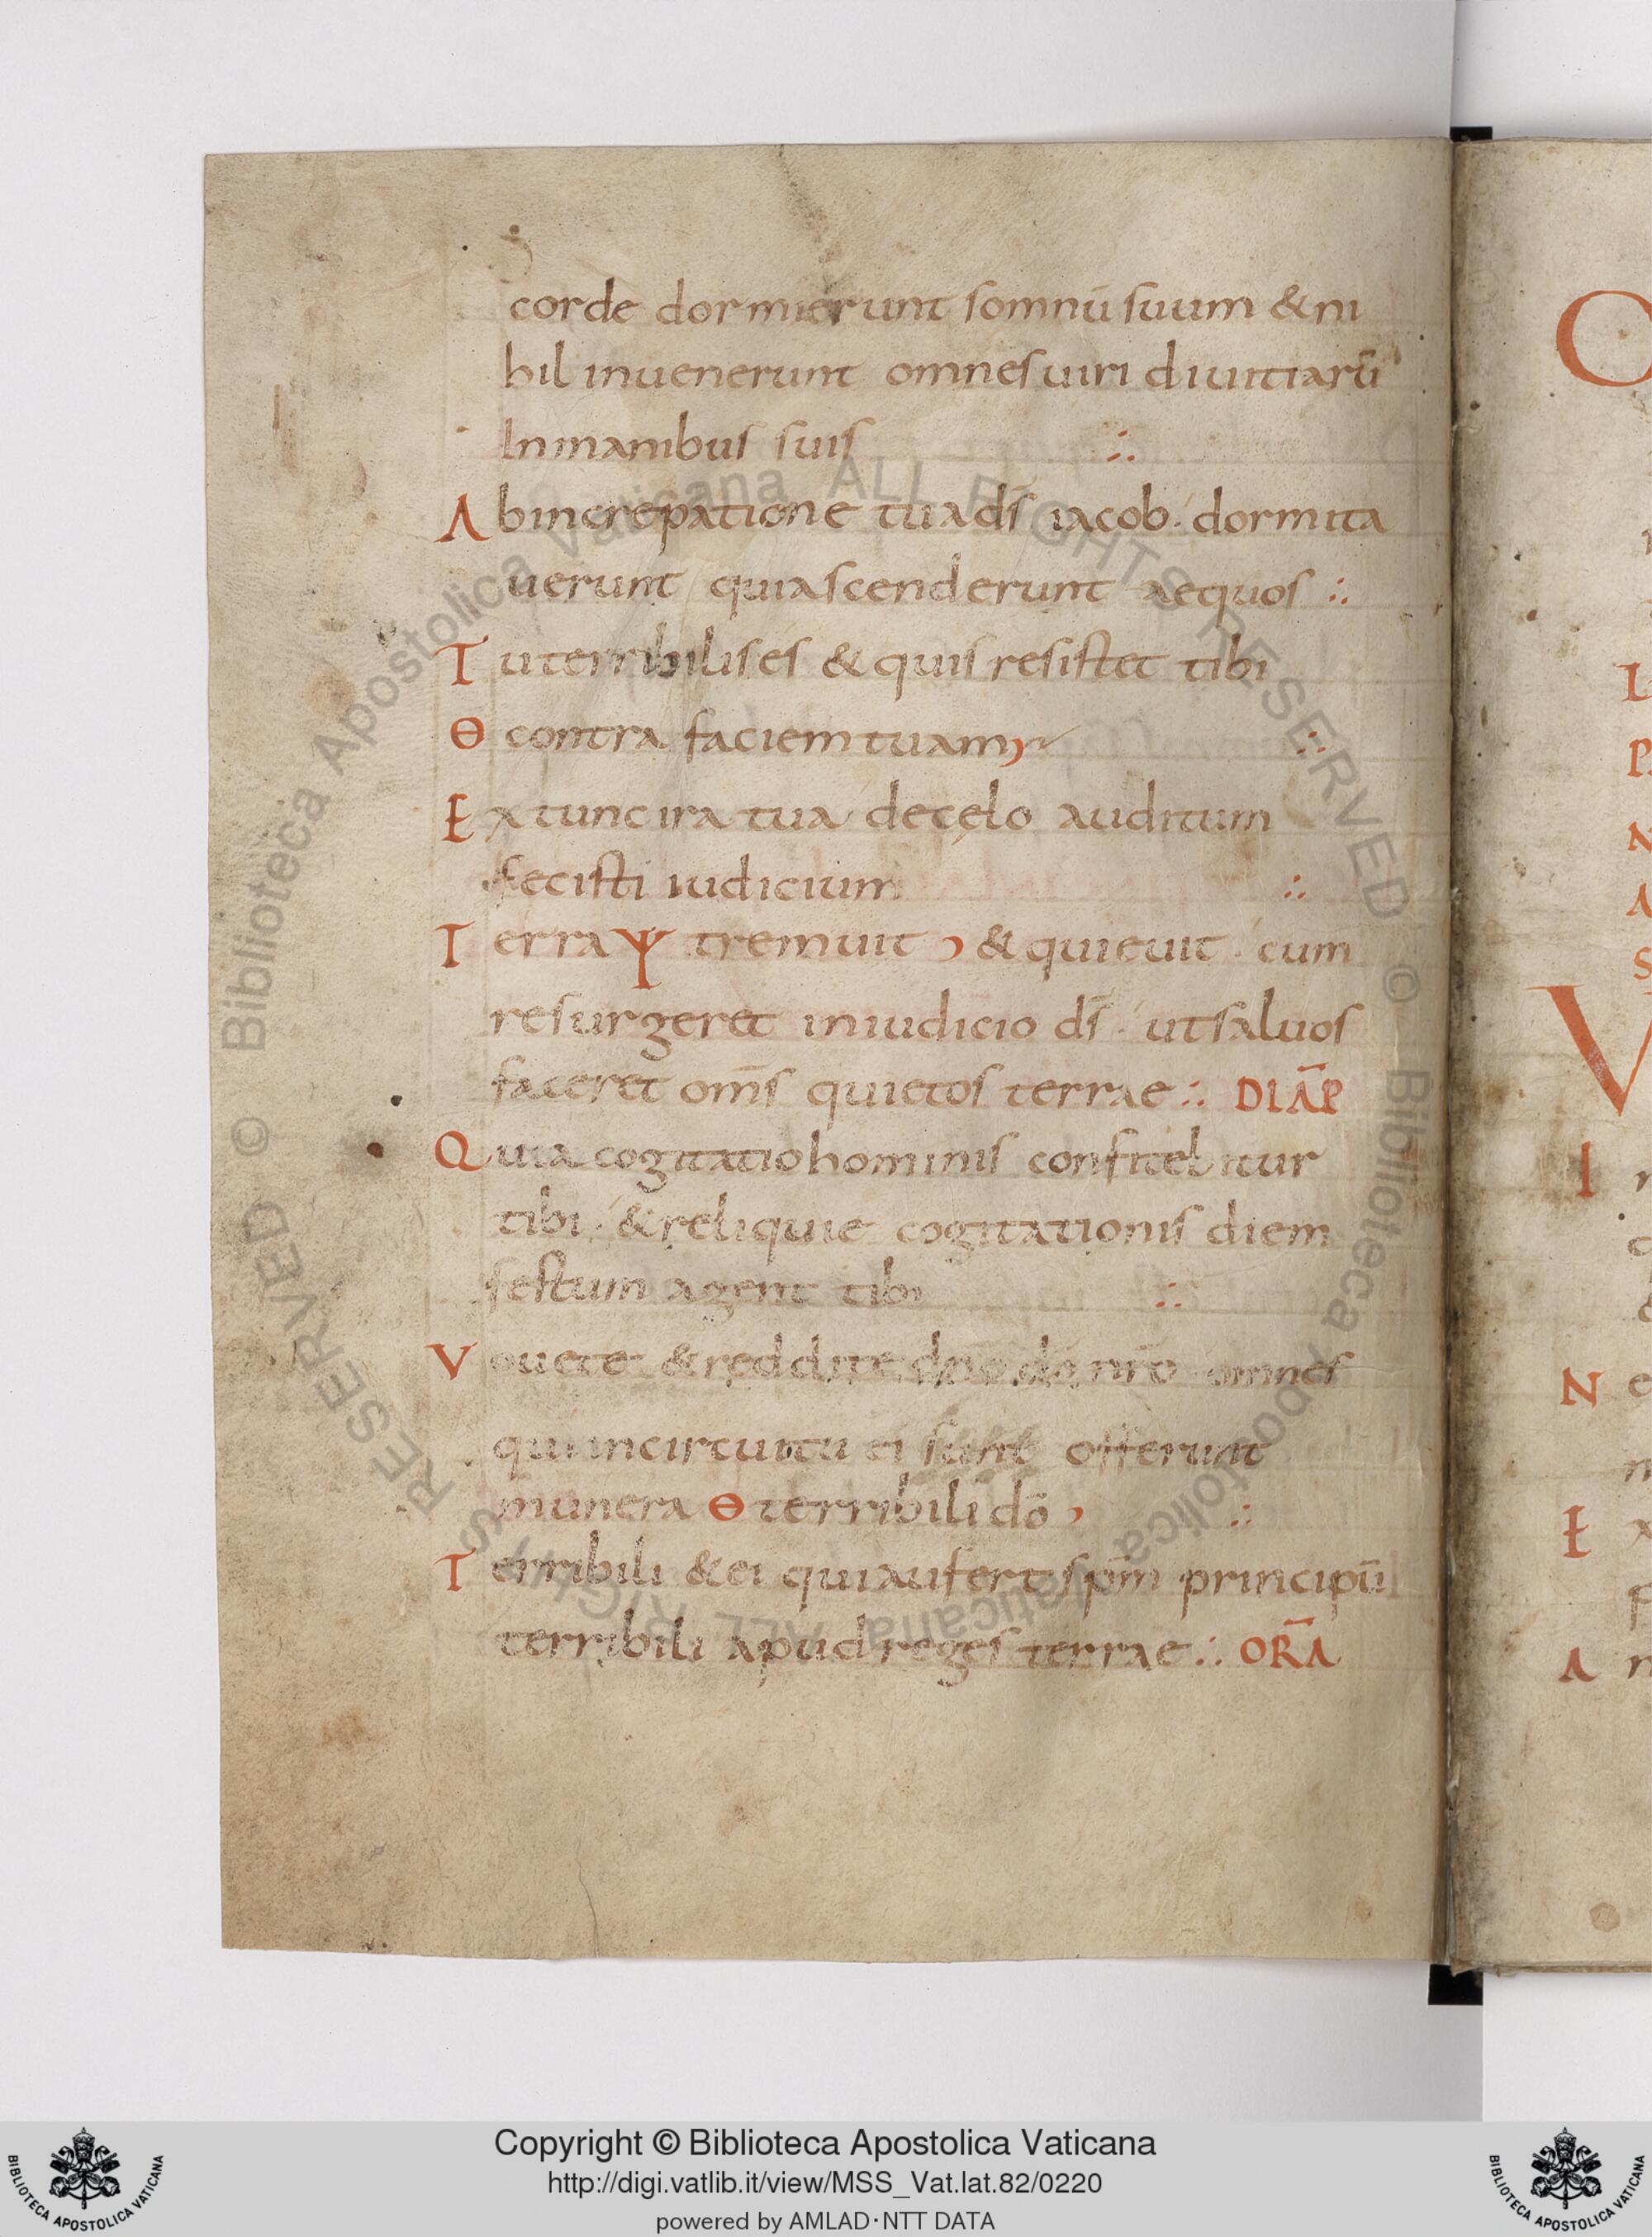 corde dormierunt somnū suum & ni
hil inuenerunt omnes uiri diuitiarū
In manibus suis ∴
Ab increpatione tua d̄s iacob · dormita
uerunt qui ascenderunt aequos ∴
Tu terribilis es & quis resistet tibi
Θ contra faciem tuam ∴
Ex tunc ira tua de cęlo auditum
fecisti iudicium ∴
Terra Ψ tremuit , & quieuit · cum
resurgeret in iudicio d̄s · ut saluos
faceret om̄s quietos terrae ∴ DIĀP
Quia cogitatio hominis confitebitur
tibi · & reliquie cogitationis diem
festum agent tibi ∴
Vouete & reddite dn̄o dō nr̄o omnes
qui in circuitu ei sunt offerunt
munera Θ terribili dō , ∴
Terribili & ei qui aufert sp̄m principū
terribili apud reges terrae ∴ OR̄A
C
L
P
N
A
S
V
I
N e
E x
A n
© Biblioteca Apostolica Vaticana ALL RIGHTS RESERVED © Biblioteca Apostolica Vaticana ALL RIGHTS RESERVED
Copyright © Biblioteca Apostolica Vaticana
http://digi.vatlib.it/view/MSS_Vat.lat.82/0220
powered by AMLAD·NTT DATA
BIBLIOTECA APOSTOLICA VATICANA
BIBLIOTECA APOSTOLICA VATICANA